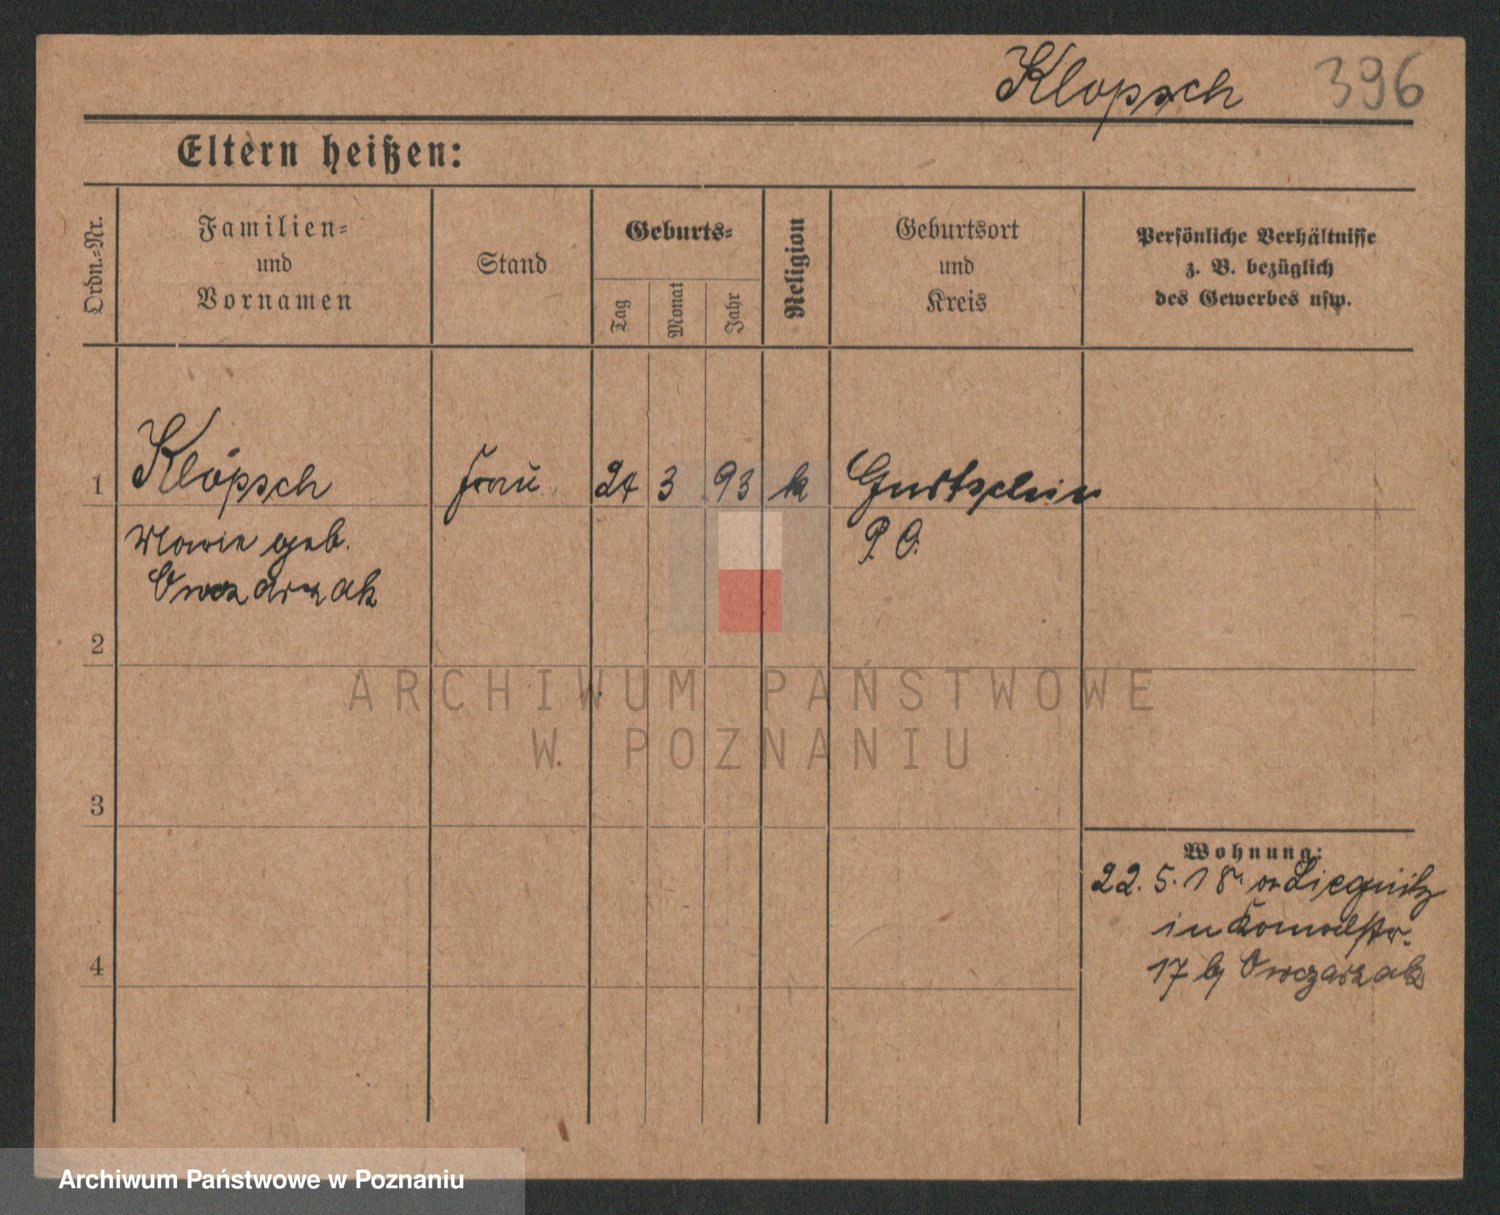 Klopsch 396
Eltern heißen:
Ordn.-Nr.
Familien-
und
Vornamen
Stand
Geburts-
Tag
Monat
Jahr
Religion
Geburtsort
und
Kreis
Persönliche Verhältnisse
z. B. bezüglich
des Gewerbes usw.
1 Klopsch Frau 24 3 93 k
P. O.
Marie geb.
Owczarzak
2
3
4
Wohnung:
22. 5. 18. v. Liegnitz
in
17 b/ Owczarzak
ARCHIWUM PAŃSTWOWE
W POZNANIU
Archiwum Państwowe w Poznaniu